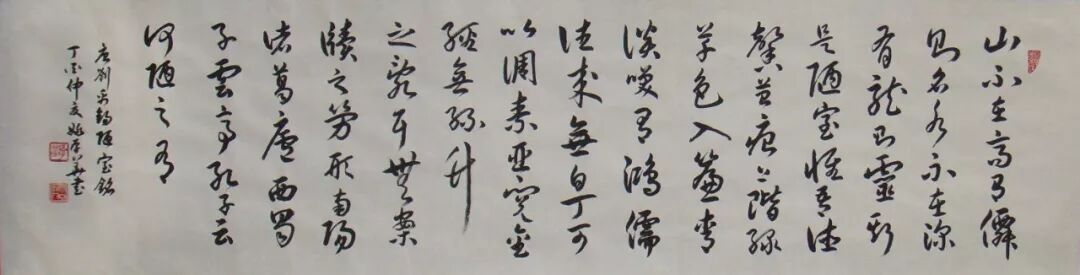 山不在高有僊
則名水不在深
有龍則靈斯
是陋室惟吾德
馨苔痕上階綠
草色入簾青
談笑有鴻儒
往來無白丁可
以調素琴閱金
經無絲竹
之亂耳無案
牘之勞形南陽
諸葛廬西蜀
子雲亭孔子云
何陋之有
唐劉禹錫陋室銘
丁酉仲夏姚書